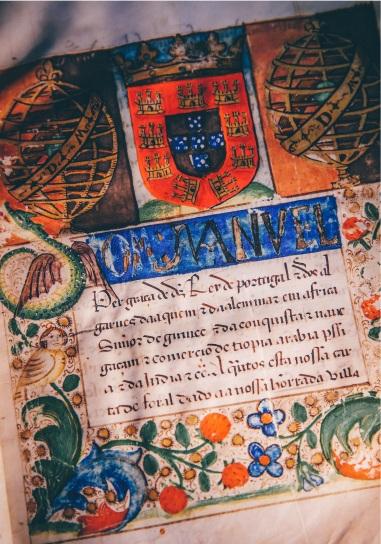 DOM MANVEL
Per graça de ds Rey de portugal ⁊ dos al
garues daquem ⁊ dalem mar em africa
Snñor de guinee ⁊ da conquista ⁊ naue
gaçam ⁊ comercio de tiopia arabia pssi
a ⁊ da India ⁊c̃ A q̃ntos esta nossa car
ta de foral dado aa nossa honrrada villa